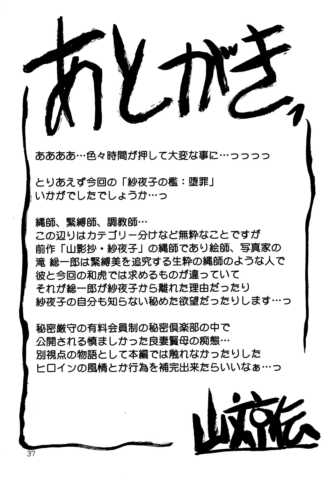 あとがき、
ああああ…色々時間が押して大変な事に…っっっっ
とりあえず今回の「紗夜子の檻：堕罪」
いかがでしたでしょうか…っ
縄師、緊縛師、調教師…
この辺りはカテゴリー分けなど無粋なことですが
前作「山影抄・紗夜子」の縄師であり絵師、写真家の
滝 総一郎は緊縛美を追究する生粋の縄師のような人で
彼と今回の和虎では求めるものが違っていて
それが総一郎が紗夜子から離れた理由だったり
紗夜子の自分も知らない秘めた欲望だったりします…っ
秘密厳守の有料会員制の秘密倶楽部の中で
公開される慎ましかった良妻賢母の痴態…
別視点の物語として本編では触れなかったりした
ヒロインの風情とか行為を補完出来たらいいなぁ…っ
山文京伝
37